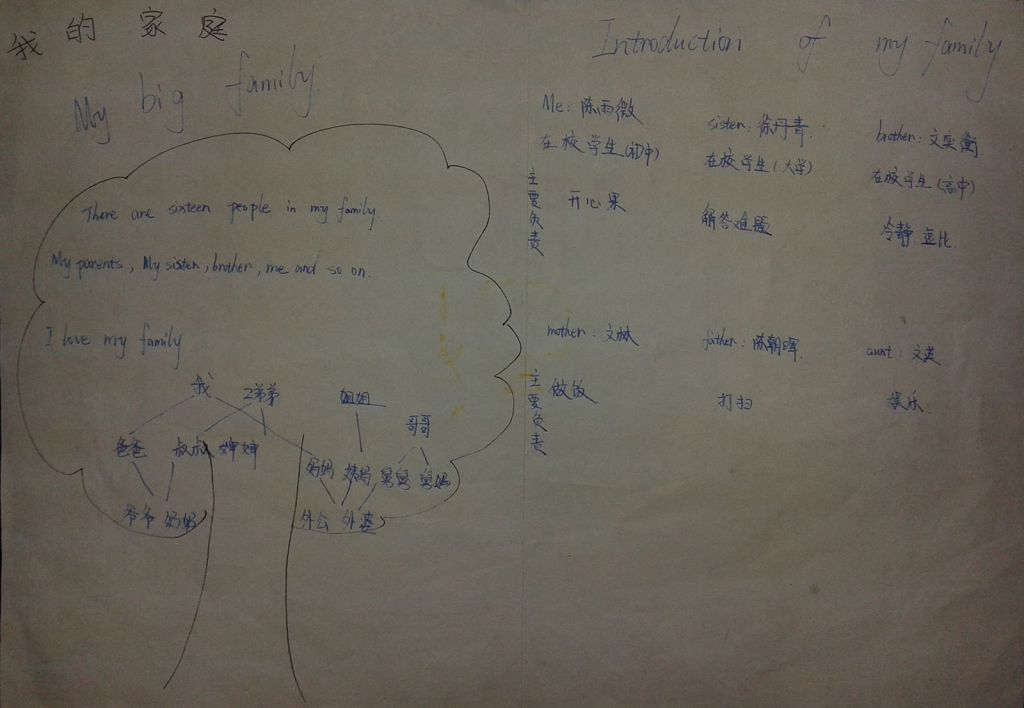 我的家庭
My big family
There are sixteen people in my family.
My parents, My sister, brother, me and so on.
I love my family
我 2弟弟 姐姐
哥哥
爸爸 叔叔 婶婶 妈妈 姨妈 舅舅 舅妈
爷爷 奶奶 外公 外婆
Introduction of my family
Me: 陈雨微 sister: 徐丹青 brother: 文奕衡
在校学生(初中) 在校学生(大学) 在校学生(高中)
主要负责 开心果 解答难题 冷静 逗比
mother: 文林 father: 陈朝晖 aunt: 文英
主要负责 做饭 打扫 娱乐